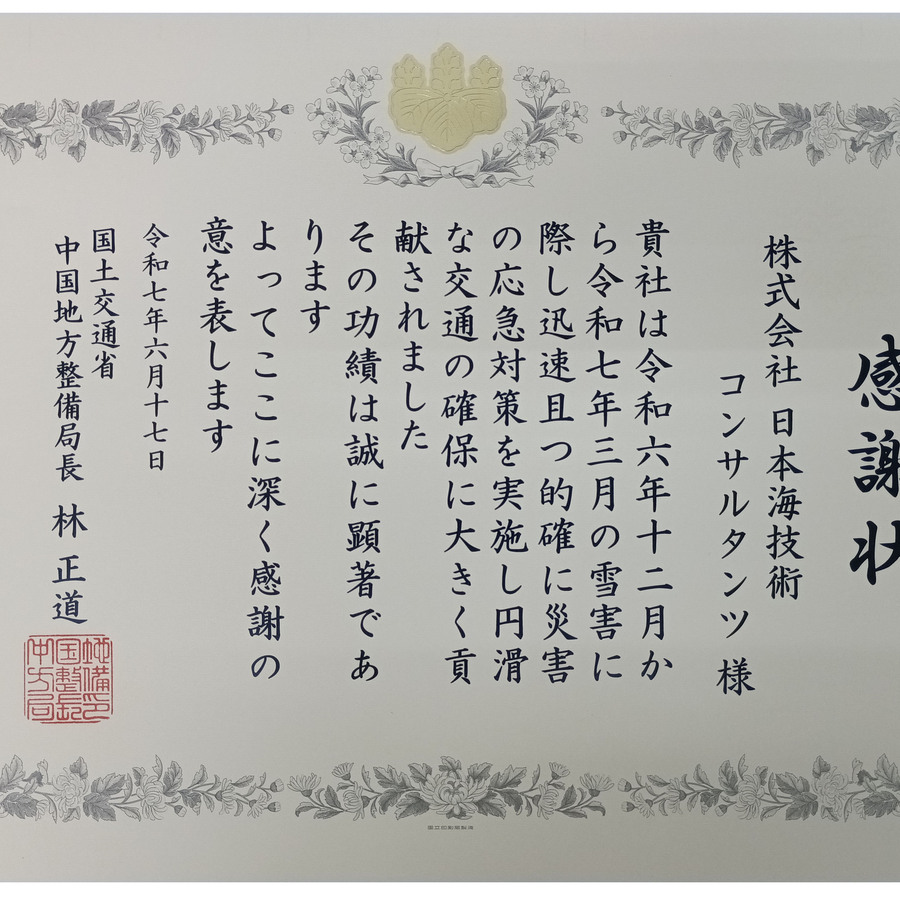 感謝状
株式会社 日本海技術
コンサルタンツ 様
貴社は令和六年十二月か
ら令和七年三月の雪害に
際し迅速且つ的確に災害
の応急対策を実施し円滑
な交通の確保に大きく貢
献されました
その功績は誠に顕著であ
ります
よってここに深く感謝の
意を表します
令和七年六月十七日
国土交通省
中国地方整備局長 林 正道